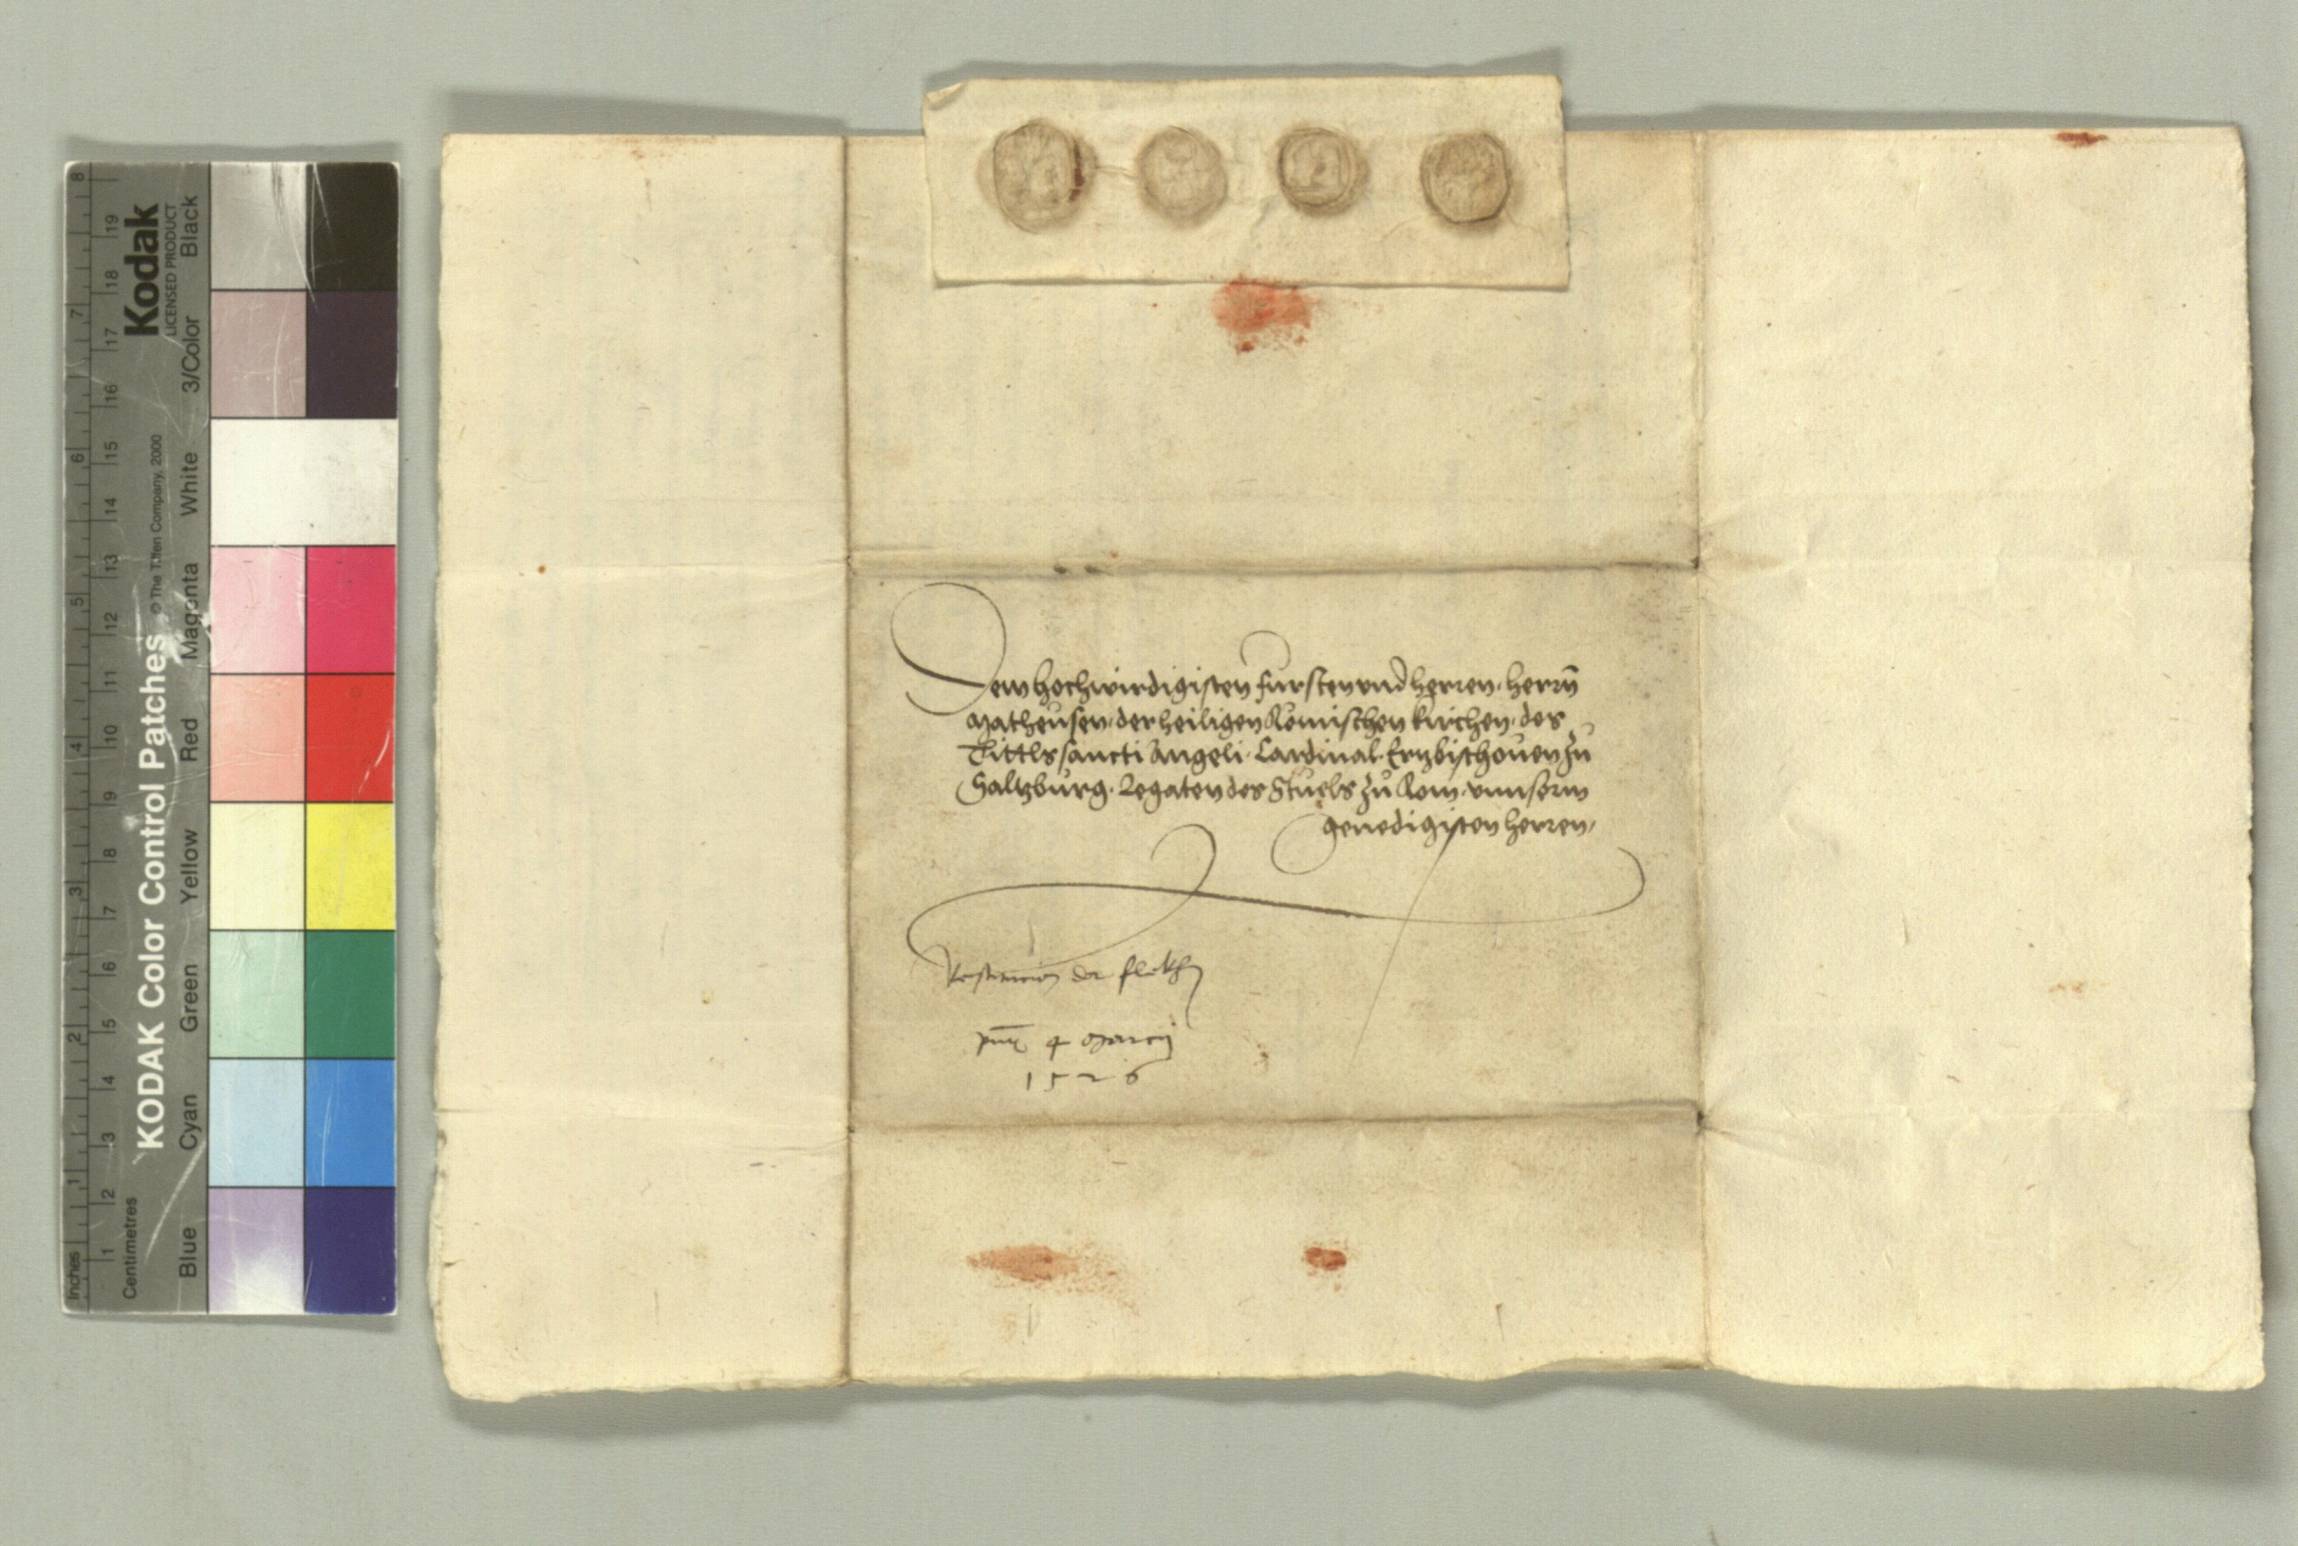 Dem hochwirdigisten fursten vnd herren, herrn
Matheusen, der heiligen Römischen kirchen, des
Tittls sancti Angeli, Cardinal, Ertzbischouen zu
Saltzburg, Legaten des Stuels zu Rom, vnnserm
genedigisten herren,
Restitucion der flekhn
4 Marcij
1526
Kodak
LICENSED PRODUCT
KODAK Color Control Patches
© The Tiffen Company, 2000
Blue Cyan Green Yellow Red Magenta White 3/Color Black
Inches 1 2 3 4 5 6 7 8
Centimetres 1 2 3 4 5 6 7 8 9 10 11 12 13 14 15 16 17 18 19